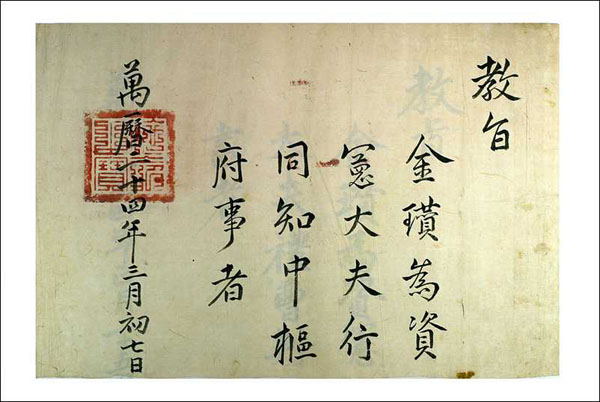 教旨
金瓚為資
憲大夫行
同知中樞
府事者
萬曆二十四年三月初七日